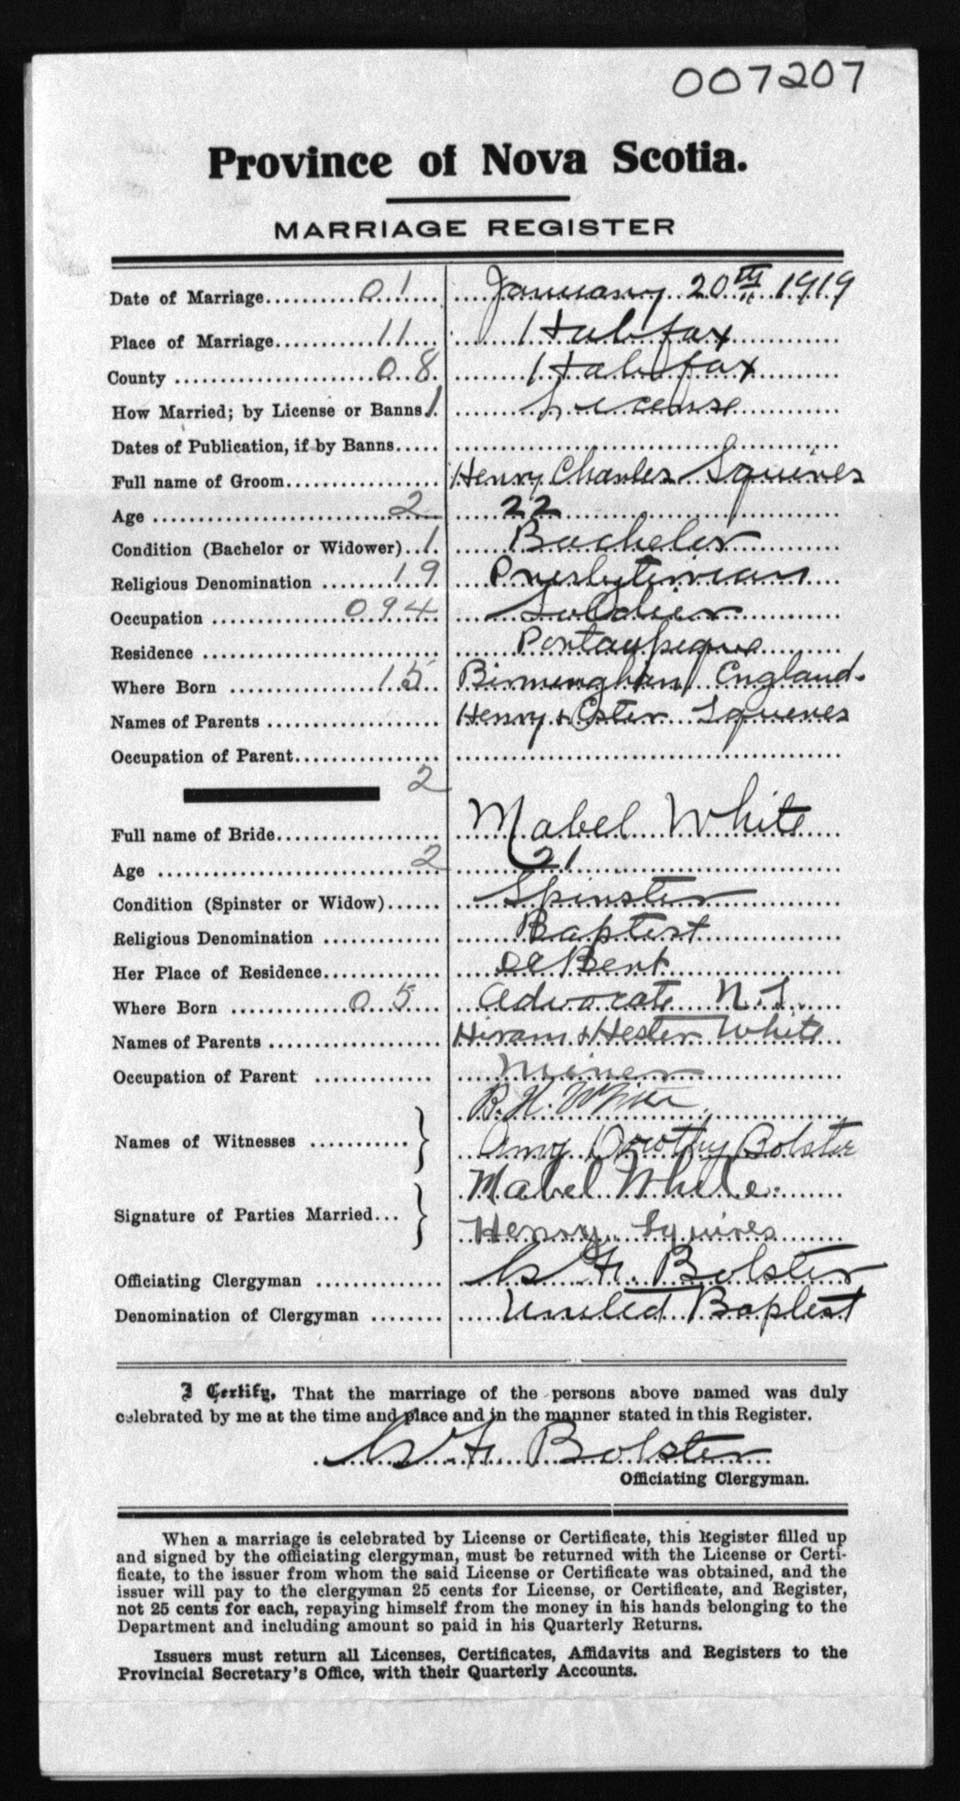 007207
Province of Nova Scotia.
MARRIAGE REGISTER
Date of Marriage..........01.... January 20th 1919
Place of Marriage..........11.... Halifax
County ....................08. Halifax
How Married; by License or Banns.1. License
Dates of Publication, if by Banns.....
Full name of Groom................. Henry Charles Squires
Age ........................2.. 22
Condition (Bachelor or Widower)..1. Bachelor
Religious Denomination .......19 Presbyterian
Occupation .............094 Soldier
Residence ........................ Portaupique
Where Born ...............15. Birmingham England.
Names of Parents .................. Henry & Ester Squires
Occupation of Parent.................
2
Full name of Bride.................. Mabel White
Age ..........................2 21
Condition (Spinster or Widow)...... Spinster
Religious Denomination ............. Baptist
Her Place of Residence............. DeBert
Where Born ............05... Advocate N.S.
Names of Parents .................. Hiram & Hester White
Occupation of Parent ............. Miner
B. H. White
Names of Witnesses ........... }
Amy Dorothy Bolster
Mabel White.
Signature of Parties Married... }
Henry Squires
Officiating Clergyman .............. Bolster
Denomination of Clergyman ........ United Baptist
I Certify, That the marriage of the persons above named was duly
celebrated by me at the time and place and in the manner stated in this Register.
Bolster
Officiating Clergyman.
When a marriage is celebrated by License or Certificate, this Register filled up
and signed by the officiating clergyman, must be returned with the License or Certi-
ficate, to the issuer from whom the said License or Certificate was obtained, and the
issuer will pay to the clergyman 25 cents for License, or Certificate, and Register,
not 25 cents for each, repaying himself from the money in his hands belonging to the
Department and including amount so paid in his Quarterly Returns.
Issuers must return all Licenses, Certificates, Affidavits and Registers to the
Provincial Secretary's Office, with their Quarterly Accounts.